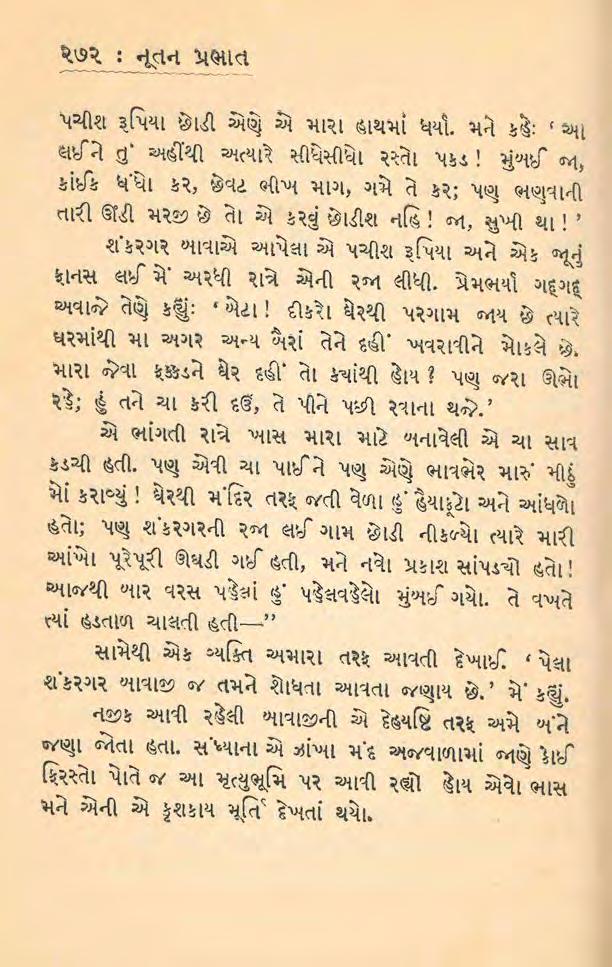 ૨૭૨ : નૂતન પ્રભાત
પચીશ રૂપિયા છોડી એણે એ મારા હાથમાં ધર્યા. મને કહેઃ ‘ આ
લઈને તું અહીંથી અત્યારે સીધેસીધો રસ્તો પકડ ! મુંબઈ જા,
કાંઈક ધંધો કર, છેવટ ભીખ માગ, ગમે તે કર; પણ ભણવાની
તારી ઊંડી મરજી છે તો એ કરવું છોડીશ નહિ ! જા, સુખી થા ! ’
શંકરગર બાવાએ આપેલા એ પચીશ રૂપિયા અને એક જૂનું
ફાનસ લઈ મેં અરધી રાત્રે એની રજા લીધી. પ્રેમભર્યા ગદ્ગદ્
અવાજે તેણે કહ્યુંઃ ‘ બેટા ! દીકરો ઘેરથી પરગામ જાય છે ત્યારે
ઘરમાંથી મા અગર અન્ય બૈરાં તેને દહીં ખવરાવીને મોકલે છે.
મારા જેવા ફક્કડને ઘેર દહીં તો ક્યાંથી હોય ? પણ જરા ઊભો
રહે; હું તને ચા કરી દઉં, તે પીને પછી રવાના થજે.’
એ ભાંગતી રાત્રે ખાસ મારા માટે બનાવેલી એ ચા સાવ
કડચી હતી. પણ એવી ચા પાઈને પણ એણે ભાવભેર મારું મીઠું
મોં કરાવ્યું ! ઘેરથી મંદિર તરફ જતી વેળા હું હૈયાફૂટો અને આંધળો
હતો; પણ શંકરગરની રજા લઈ ગામ છોડી નીકળ્યો ત્યારે મારી
આંખો પૂરેપૂરી ઊઘડી ગઈ હતી, મને નવો પ્રકાશ સાંપડચો હતો !
આજથી બાર વરસ પહેલાં હું પહેલવહેલો મુંબઈ ગયો. તે વખતે
ત્યાં હડતાળ ચાલતી હતી—”
સામેથી એક વ્યક્તિ અમારા તરફ આવતી દેખાઈ. ‘ પેલા
શંકરગર બાવાજી જ તમને શોધતા આવતા જણાય છે.’ મેં કહ્યું.
નજીક આવી રહેલી બાવાજીની એ દેહયષ્ટિ તરફ અમે બંને
જણા જોતા હતા. સંધ્યાના એ ઝાંખા મંદ અજવાળામાં જાણે કોઈ
ફિરસ્તો પોતે જ આ મૃત્યુભૂમિ પર આવી રહ્યો હોય એવો ભાસ
મને એની એ કૃશકાય મૂર્તિ દેખતાં થયો.